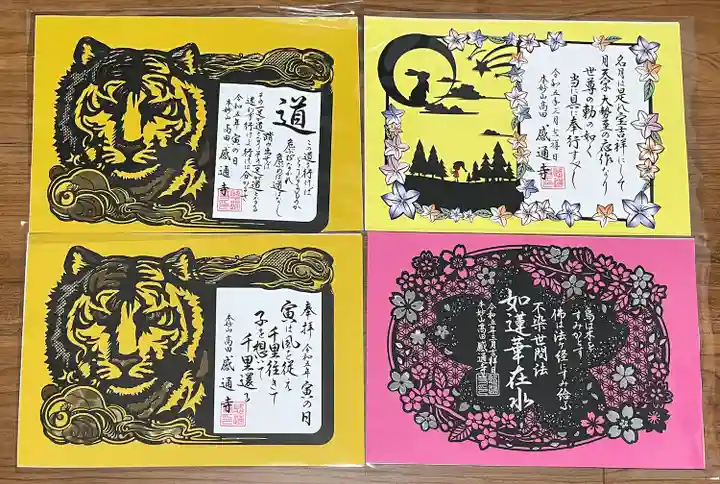 道
この道を行けば
どうなるものか
危ぶむなかれ
危ぶめば道はなし
踏み出せば
その一足が道となりその一足が道となる
迷わず行けよ行けばわかるさ
令和五年 寅の日
本妙山 高田 感通寺
名月は是れ宝吉祥にして
月天子大勢至の応作なり
世尊の勅の如く
当に具に奉行すべし
本妙山高田 感通寺
奉拝 令和五年 寅の日
寅は風を従え
千里往きて
千里還る
子を想いて
本妙山 高田 感通寺
鳥は木を
すみかとす
佛は法に
すみ給ふ
不染世間法
如蓮華在水
本妙山高田 感通寺